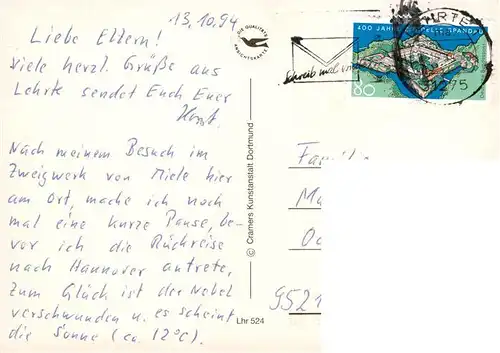 13.10.94
Liebe Eltern!
viele herzl. Grüße aus
Lehrte sendet Euch Euer
Horst.
Nach meinem Besuch im
Zweigwerk von Miele hier
am Ort, mache ich noch
mal eine kurze Pause, be-
vor ich die Rückreise
nach Hannover antrete,
Zum Glück ist der Nebel
verschwunden u. es scheint
die Sonne (ca. 12°C).
DIE QUALITÄTS
ANSICHTSKARTE
© Cramers Kunstanstalt Dortmund
Lhr 524
Schreib mal
400 JAHRE SPANDAU
80
31275
Famili
Ma
9521